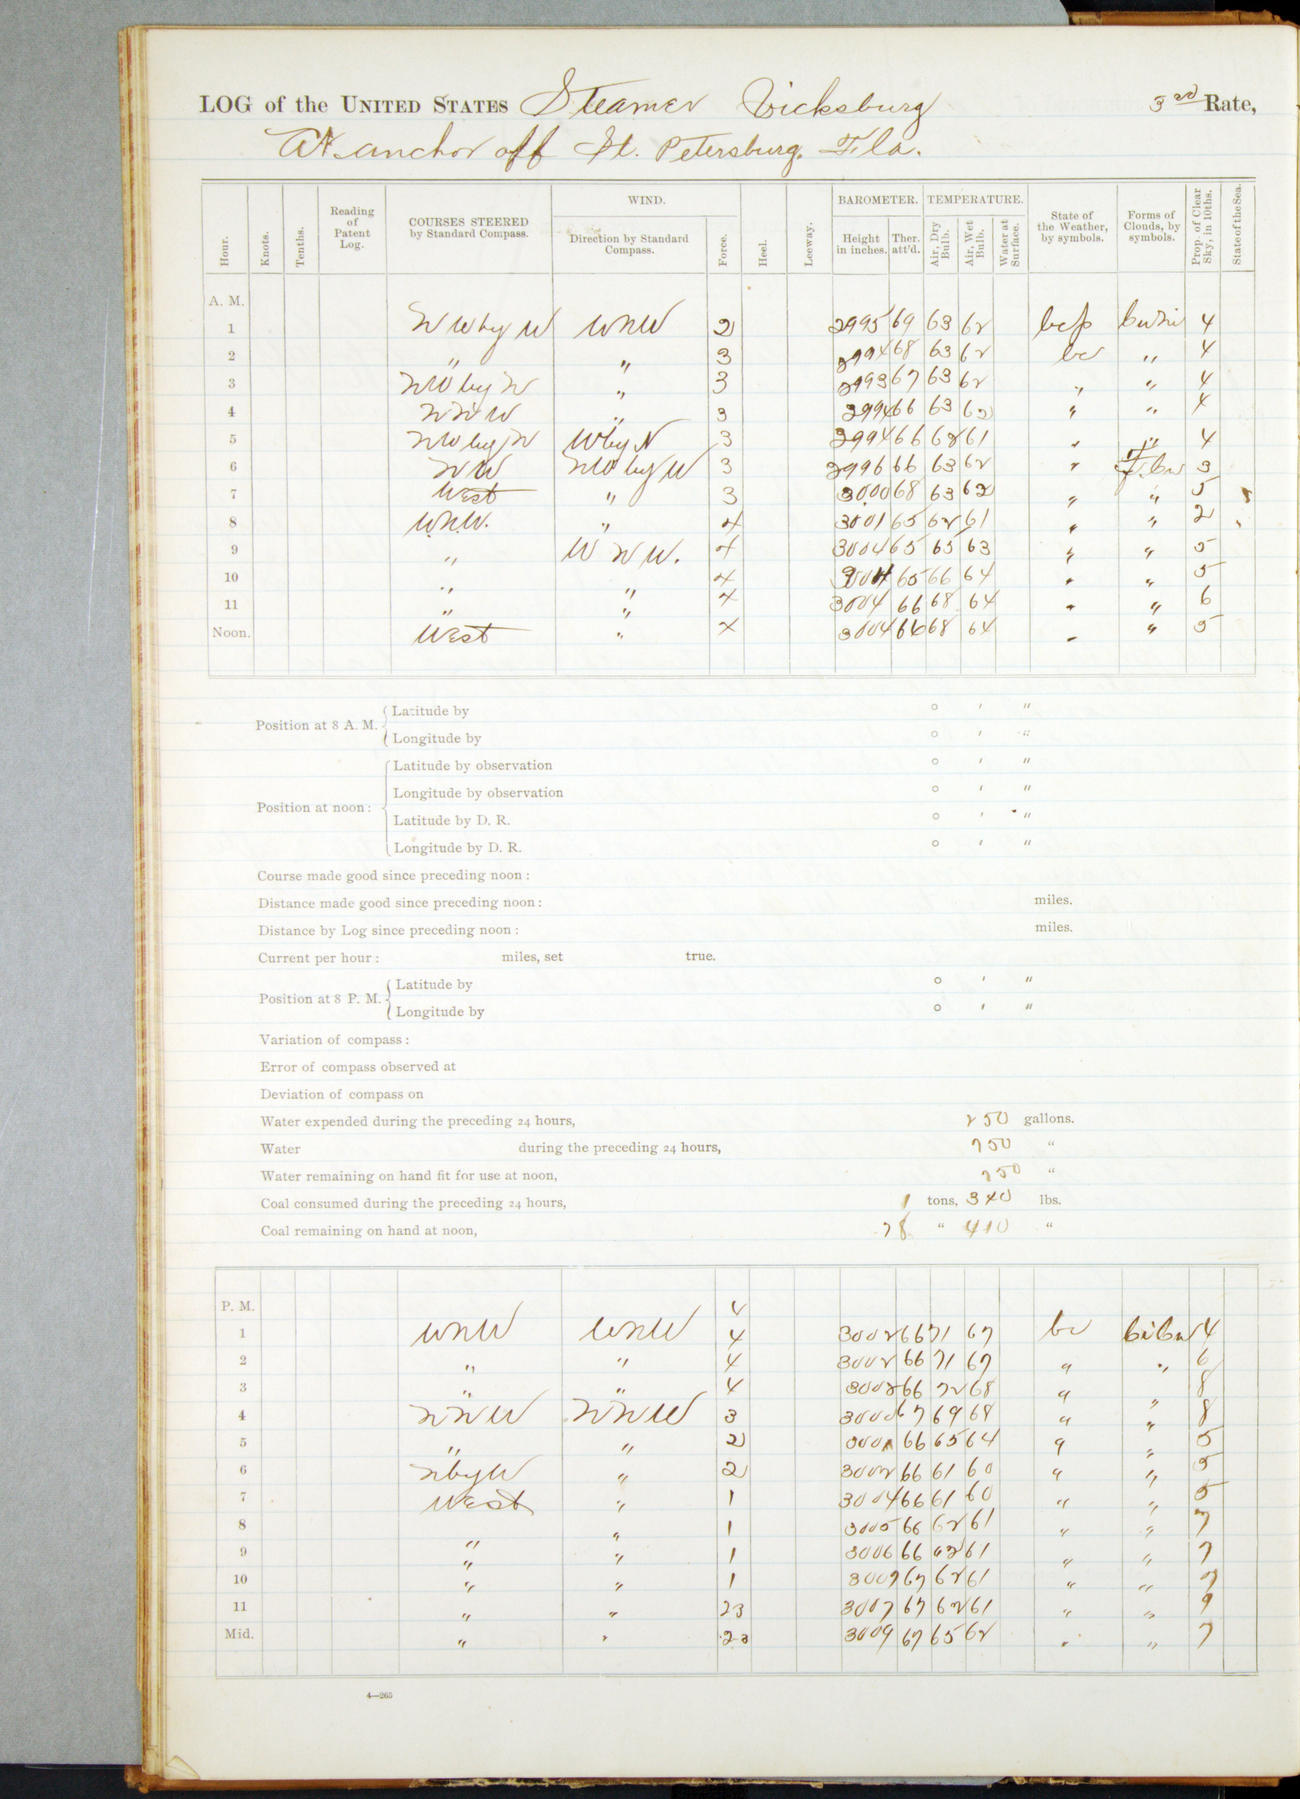 LOG of the UNITED STATES Steamer Vicksburg 3rd Rate,
At anchor off St. Petersburg. Fla.
Hour. Knots. Tenths. Reading of Patent Log. COURSES STEERED by Standard Compass. WIND. Direction by Standard Compass. Force. Heel. Leeway. BAROMETER. Height in inches. Ther. att'd. TEMPERATURE. Air, Dry Bulb. Air, Wet Bulb. Water at Surface. State of the Weather, by symbols. Forms of Clouds, by symbols. Prop. of Clear Sky, in 10ths. State of the Sea.
A. M.
1 NW by W WNW 2 2995 69 63 62 bcp 4
2 " " 3 2994 68 63 62 bc " 4
3 NW by N " 3 2993 67 63 62 " " 4
4 NNW " 3 2994 66 63 62 " " 4
5 NW by N W by N 3 2994 66 62 61 " " 4
6 NW NW by W 3 2996 66 63 62 " 3
7 West " 3 3000 68 63 62 " " 5
8 WNW. " 4 3001 65 62 61 " " 2
9 " WNW. 4 3004 65 65 63 " " 5
10 " " 4 3004 65 66 64 " " 5
11 " " 4 3004 66 68 64 " " 6
Noon. West " 4 3004 66 68 64 " " 5
Position at 8 A. M. Latitude by ° ′ ″
Longitude by ° ′ ″
Position at noon: Latitude by observation ° ′ ″
Longitude by observation ° ′ ″
Latitude by D. R. ° ′ ″
Longitude by D. R. ° ′ ″
Course made good since preceding noon:
Distance made good since preceding noon: miles.
Distance by Log since preceding noon: miles.
Current per hour: miles, set true.
Position at 8 P. M. Latitude by ° ′ ″
Longitude by ° ′ ″
Variation of compass:
Error of compass observed at
Deviation of compass on
Water expended during the preceding 24 hours, 250 gallons.
Water during the preceding 24 hours, 750 "
Water remaining on hand fit for use at noon, 750 "
Coal consumed during the preceding 24 hours, 1 tons, 340 lbs.
Coal remaining on hand at noon, 78 " 410 "
P. M. 4
1 WNW WNW 4 3002 66 71 67 bc 4
2 " " 4 3002 66 71 67 " " 6
3 " " 4 3002 66 72 68 " " 8
4 NNW NNW 3 3000 67 69 68 " " 8
5 " " 2 66 65 64 " " 5
6 N by W " 2 3002 66 61 60 " " 5
7 West " 1 3004 66 61 60 " " 5
8 " " 1 3005 66 62 61 " " 7
9 " " 1 3006 66 62 61 " " 7
10 " " 1 3007 67 62 61 " " 7
11 " " 23 3007 67 62 61 " " 9
Mid. " " 23 3009 67 65 62 " " 7
4—265